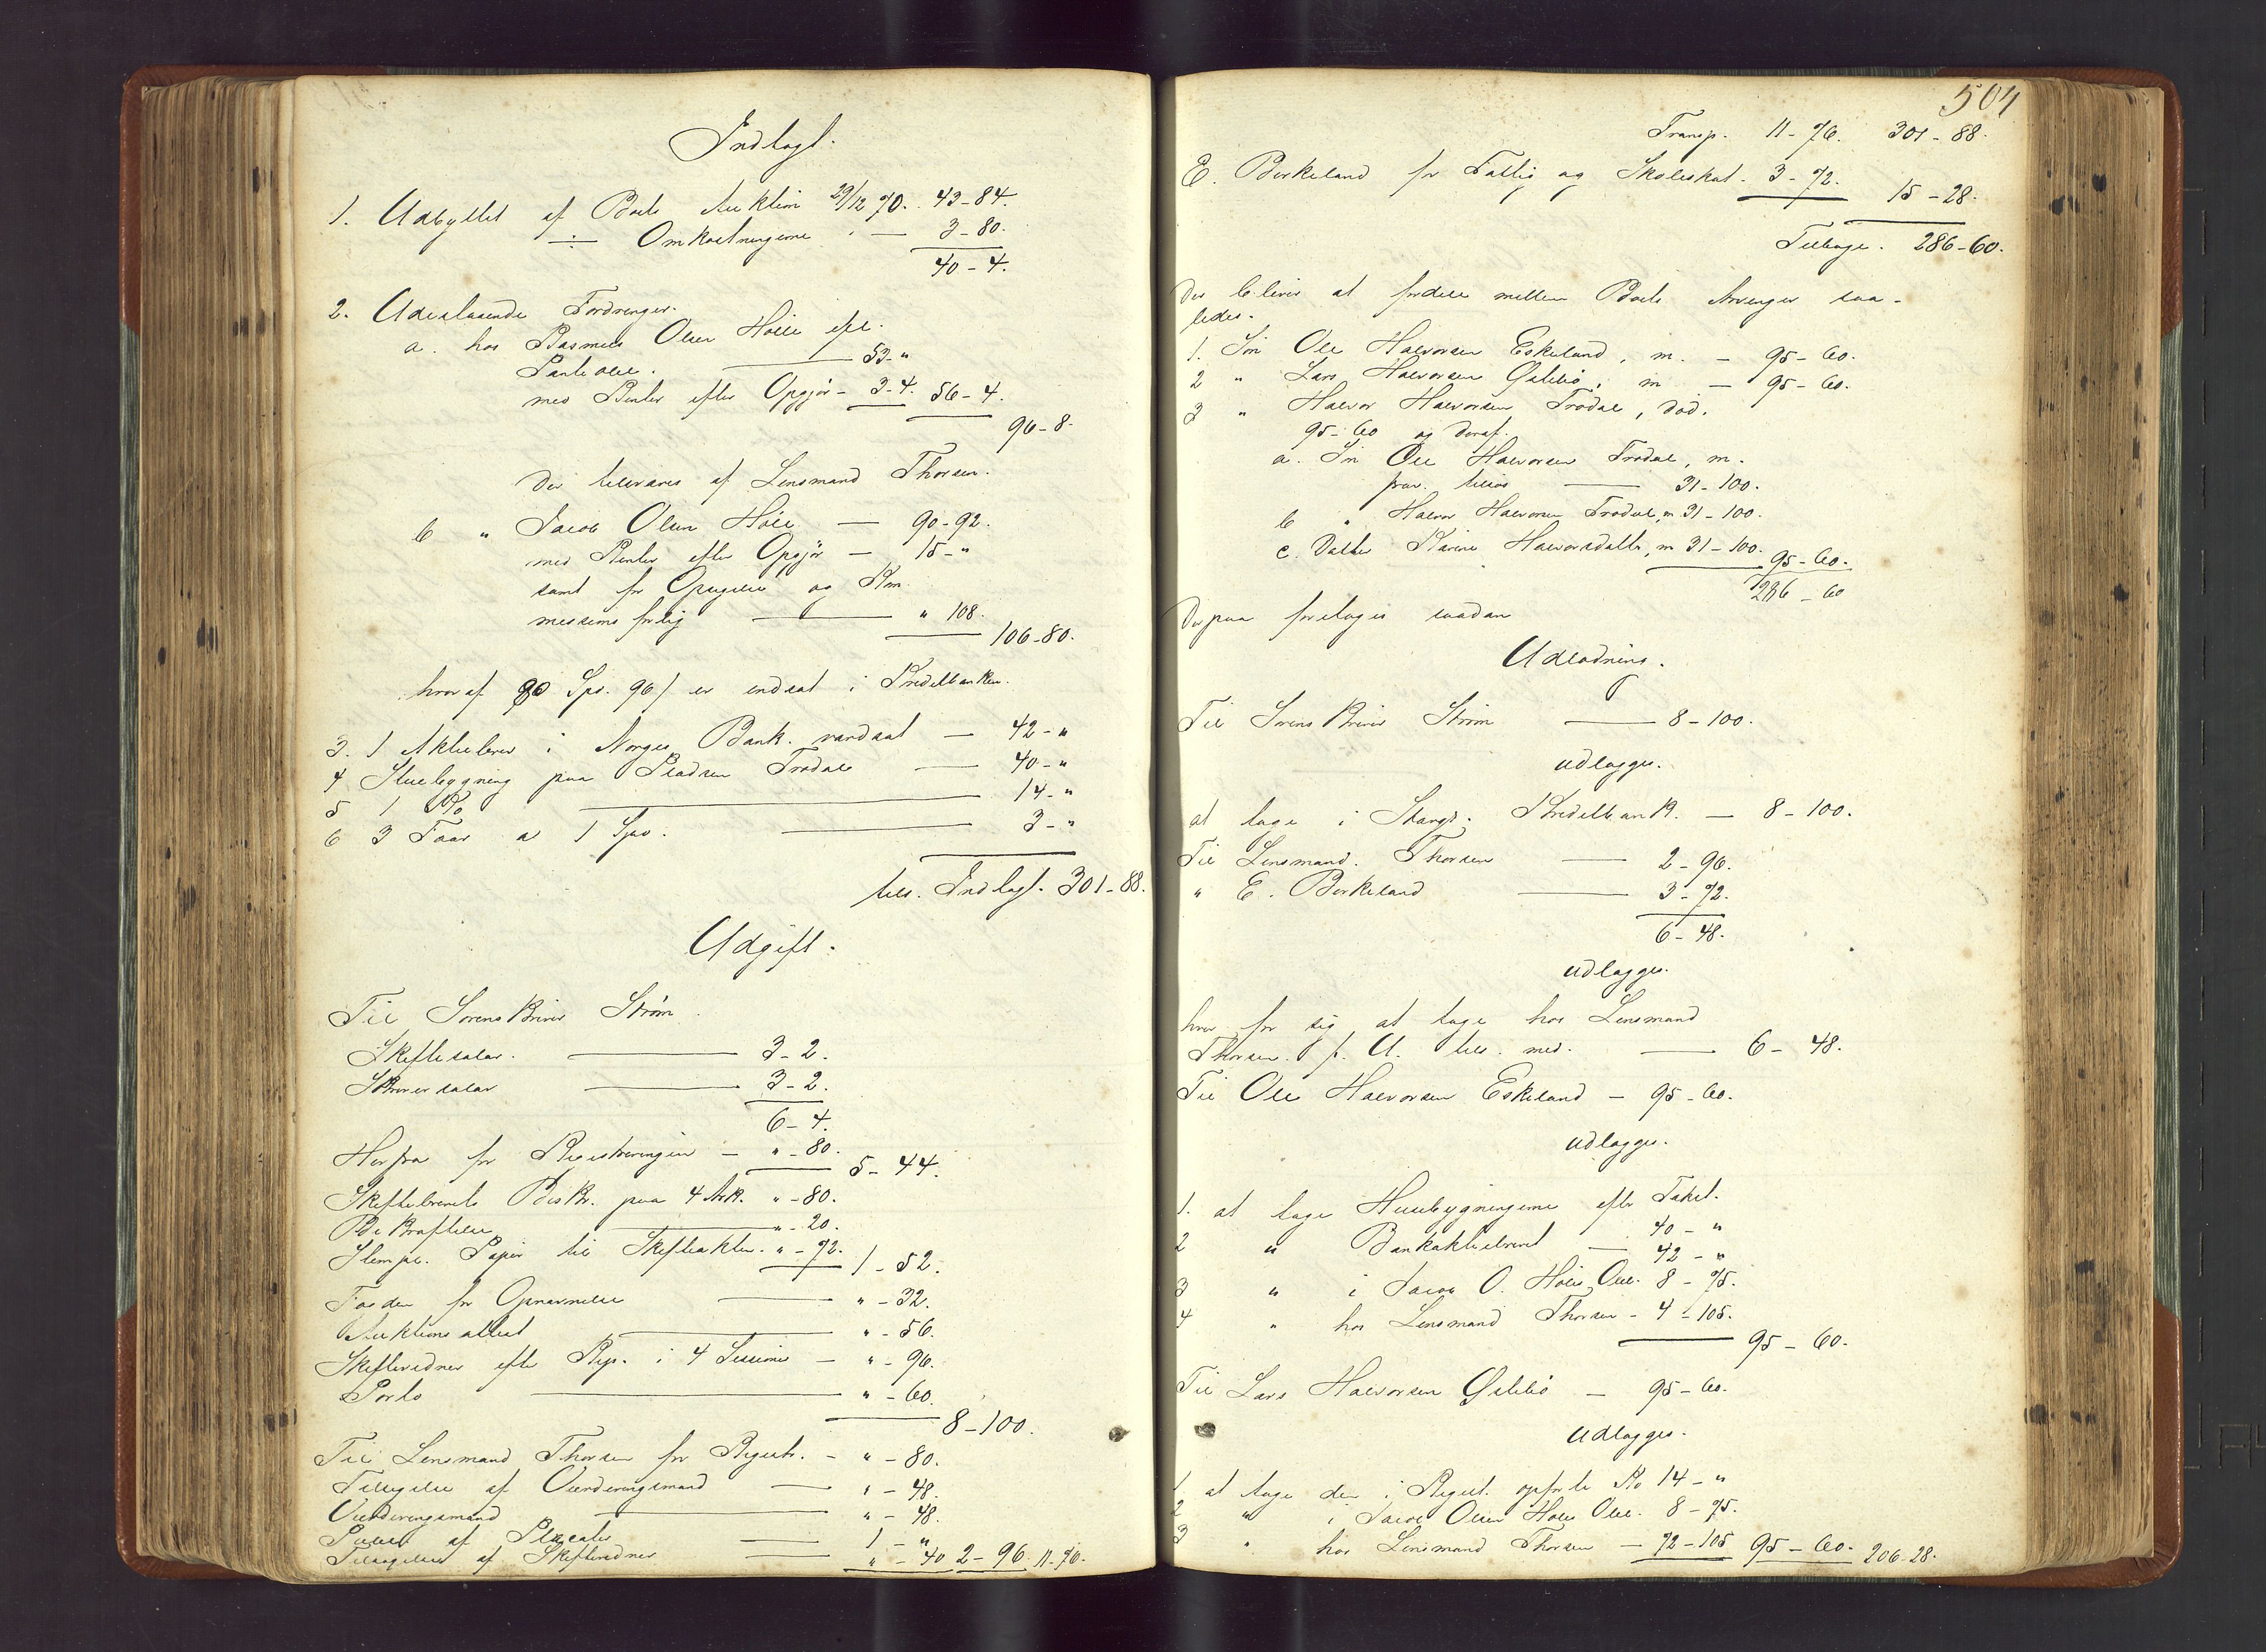 Indtægt.
1. Udbyttet af Boets Auktion 29/12 70. 43-84.
÷ Omkostningerne " — 3-80.
40-4.
2. Udestaaende Fordringer.
a. hos Rasmus Olsen Höile efter
Panteobl. — 53-"
med Renter efter Opgjør - 3-4. 56-4.
96-8.
Der tilsvares af Lensmand Thorsen.
b " Jacob Olsen Höile — 90-92.
med Renter efter Opgjør — 15-"
samt for Opsigelse og Kom
missionsforlig — " 108.
106-80.
hvoraf 90 Spd. 96 / er indsat i Kreditbanken.
3. 1 Aktiebrev i Norges Bank. værdsat — 42-"
4 Stuebygning paa Pladsen Trodal — 40-"
5 1 Ko — 14-"
6 3 Faar a 1 Spd. — 3-"
tils. Indtægt. 301-88.
Udgift.
Til Sorenskriver Strøm
Skiftesalær. — 3-2.
Skriversalær — 3-2.
6-4.
Herfra for Registreringen — "-80.
5-44.
Skiftebrevets Beskr. paa 4 Ark. "-80.
Bekræftelse — "-20.
Stempl. Papir til Skifteakten. "-72. 1-52.
Foged for Opnævnelse — "-32.
Auktionsattest — "-56.
Skiftevidner efter Rep. i 4 Sessioner — "-96.
Porto — "-60.
8-100.
Til Lensmand Thorsen for Registr. — "-80.
Tilsigelse af Vurderingsmænd — "-48.
Vurderingsmænd — "-48.
af Placater — 1-"
Tilsigelse af Skiftevidner — "-40 2-96. 11-76.
504
Transp. 11-76. 301-88.
E. Birkeland for Fattig og Skoleskat. 3-72.
15-28.
Tilbage. 286-60.
Der bliver at fordele mellem Boets Arvinger saa-
ledes.
1. Søn Ole Halvorsen Eskeland, m. — 95-60.
2 " Lars Halvorsen Østebö, m — 95-60.
3 " Halvor Halvorsen Trodal, död.
95-60 og deraf.
a. Søn Ole Halvorsen Trodal, m.
— 31-100.
b " Halvor Halvorsen Trodal, m 31-100.
c. Datter Karine Halvorsdatter, m 31-100. 95-60.
286-60
Derpaa foretages saadan
Udlodning.
Til Sorenskriver Strøm — 8-100.
udlægges.
at tage i Stavgr. Kreditbank. — 8-100.
Til Lensmand. Thorsen — 2-96.
" E. Birkeland — 3-72.
6-48.
udlægges.
hver for sig at tage hos Lensmand
Thorsen. p. A. tils. med. — 6-48.
Til Ole Halvorsen Eskeland — 95-60.
udlægges.
1. at tage Huusbygningerne efter Taxt.
40-"
2 " Bankaktiebrevet — 42-"
3 " i Jacob O. Höiles Obl. 8-75.
4 " hos Lensmand Thorsen — 4-105.
95-60.
Til Lars Halvorsen Østebö — 95-60.
udlægges.
1 at tage den i Regist. opførte Ko 14-"
2 " i Jacob Olsen Höiles Obl. 8-75.
3 " hos Lensmand Thorsen — 72-105 95-60. 206-28.